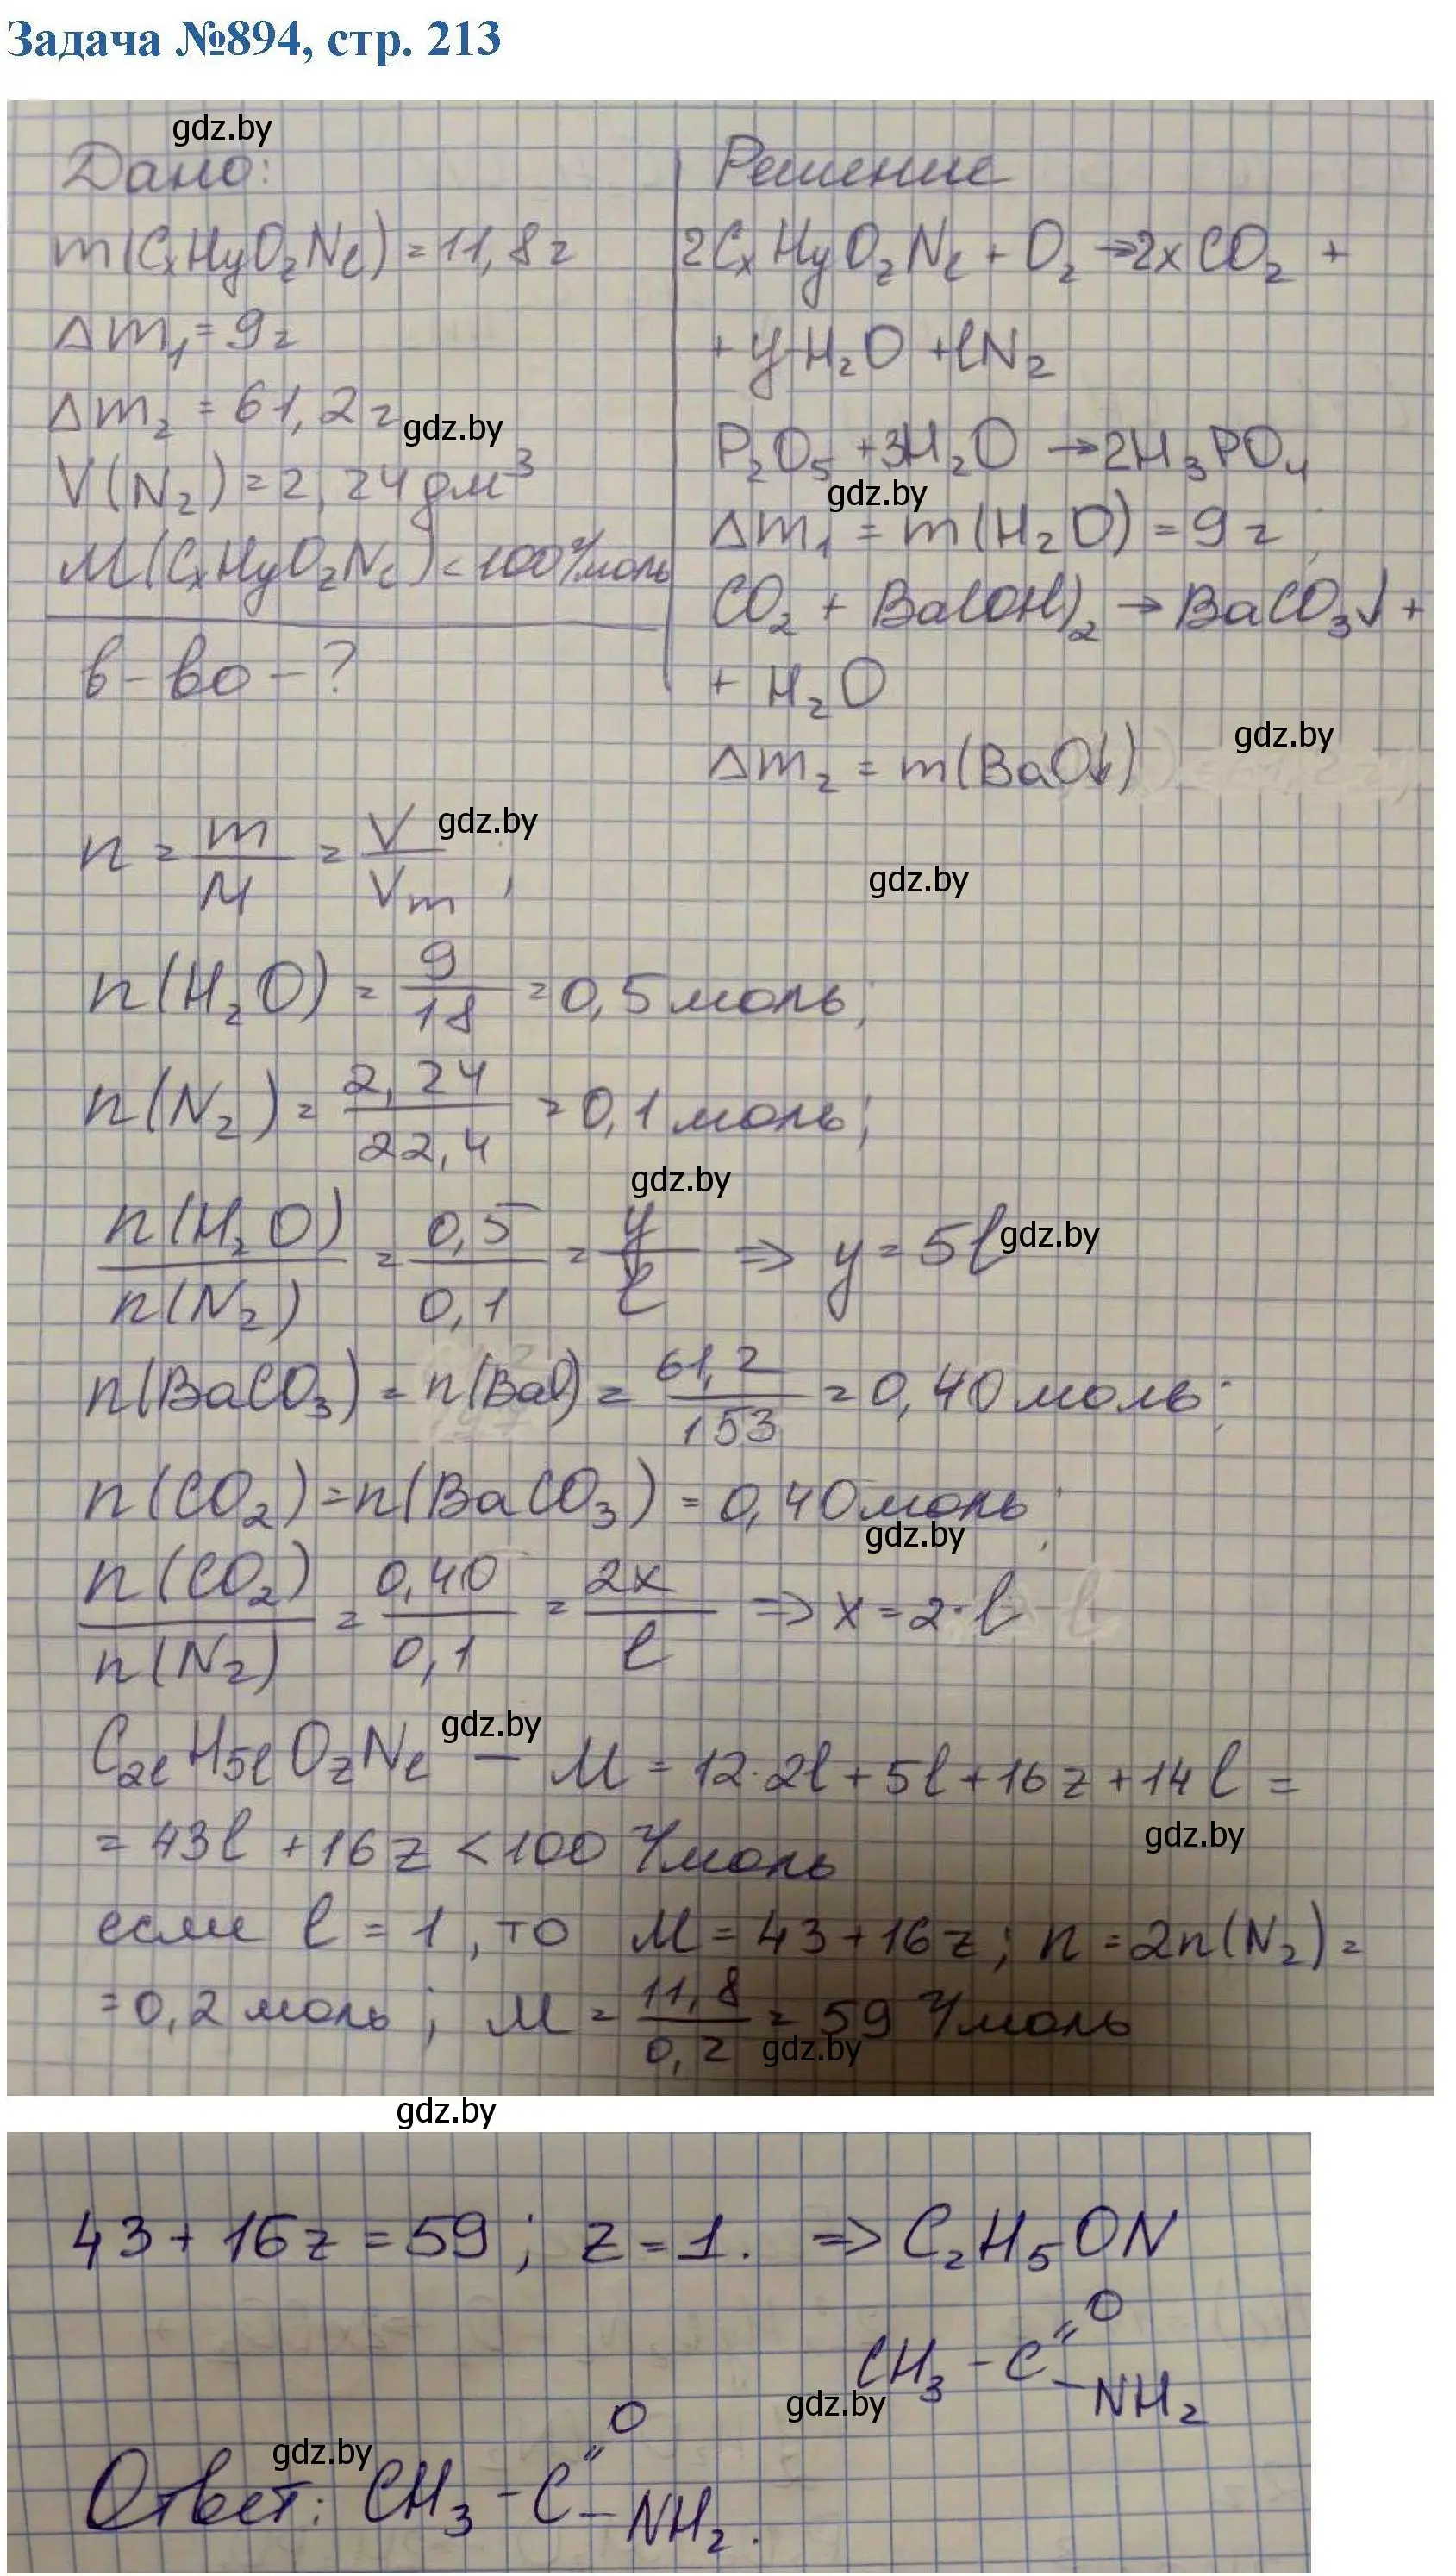 Задача №894, стр. 213
gdz.by
Дано:
m(CxHyOzNl) = 11,8 г
Δm₁ = 9 г
Δm₂ = 61,2 г
gdz.by
V(N₂) = 2,24 дм³
M(CxHyOzNl) < 100 г/моль
в-во - ?
Решение
2CxHyOzNl + O₂ → 2xCO₂ +
+ yH₂O + lN₂
P₂O₅ + 3H₂O → 2H₃PO₄
gdz.by
Δm₁ = m(H₂O) = 9 г;
CO₂ + Ba(OH)₂ → BaCO₃↓ +
+ H₂O
gdz.by
Δm₂ = m(BaO↓)
n = m/M = V/Vm;
gdz.by
gdz.by
n(H₂O) = 9/18 = 0,5 моль;
n(N₂) = 2,24/22,4 = 0,1 моль;
gdz.by
n(H₂O)/n(N₂) = 0,5/0,1 = y/l ⇒ y = 5l
gdz.by
n(BaCO₃) = n(BaO) = 61,2/153 = 0,40 моль;
n(CO₂) = n(BaCO₃) = 0,40 моль;
gdz.by
n(CO₂)/n(N₂) = 0,40/0,1 = 2x/l ⇒ x = 2·l
gdz.by
C₂lH₅lOzNl — M = 12·2l + 5l + 16z + 14l =
= 43l + 16z < 100 г/моль
gdz.by
если l = 1, то M = 43 + 16z; n = 2n(N₂) =
= 0,2 моль; M = 11,8/0,2 = 59 г/моль
gdz.by
gdz.by
43 + 16z = 59; z = 1. ⇒ C₂H₅ON
CH₃ - C =O - NH₂
gdz.by
gdz.by
Ответ: CH₃ - C =O - NH₂.